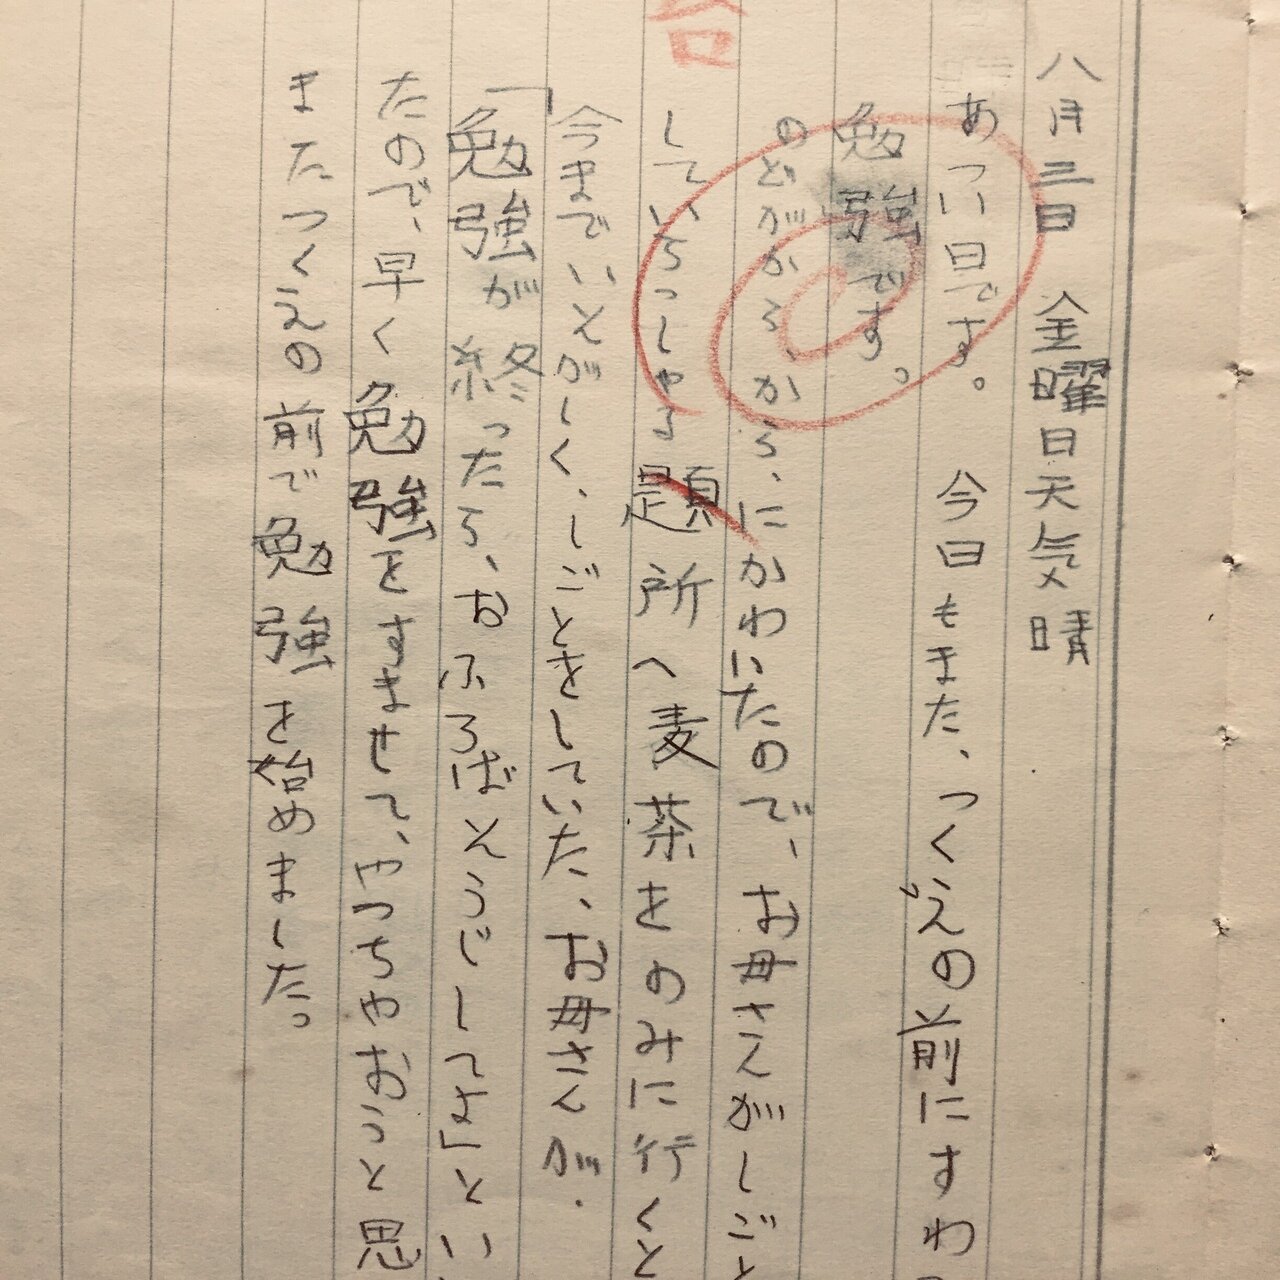 八月三日　金曜日天気晴
あつい日です。　今日もまた、つくえの前にすわ
勉強です。
のどがから、から、にかわいたので、お母さんがしごと
台
していらっしゃる題所へ麦茶をのみに行くと
今までいそがしく、しごとをしていた、お母さんが、
「勉強が終ったら、おふろばそうじしてよ」とい
たので、早く勉強をすませて、やっちゃおうと思
またつくえの前で勉強を始めました。